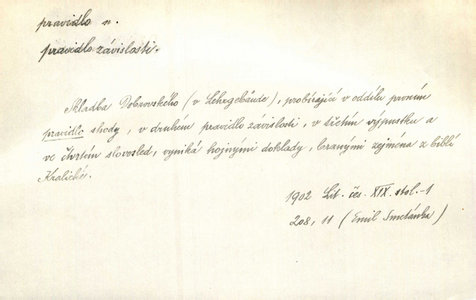 pravidlo n.
pravidlo závislosti.
Skladba Dobrovského (v Lehrgebäude), probírající v oddílu prvním
pravidlo shody, v druhém pravidlo závislosti, v třetím výpustku a
ve čtvrtém slovosled, vyniká hojnými doklady, branými zejména z biblí
Kralické.
1902 Lit. čes. XIX. stol.-1
208, 11 (Emil Smetánka)